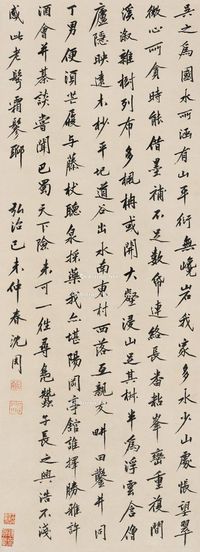 吳之為國水所涵有山平衍無峻岩我家多水少山處悵望翠
微心所貪時能借墨補不足數紙連絡長番黏峯巒重複間
溪澗雜樹列布多楓柟或開大壑浸山足其林半為浮雲含僧
廬隱映遠木杪平地道谷出水南東村西落互親友畊田鑿井同
丁男便酒芒屨与藤杖聽泉採藥我亦堪陽岡亭館誰擇勝雅許
酒會并棊談嘗聞巴蜀天下險未可一往尋鳧鷖子長之興浩不淺
感此老髩霜鬖鬖
弘治己未仲春沈周